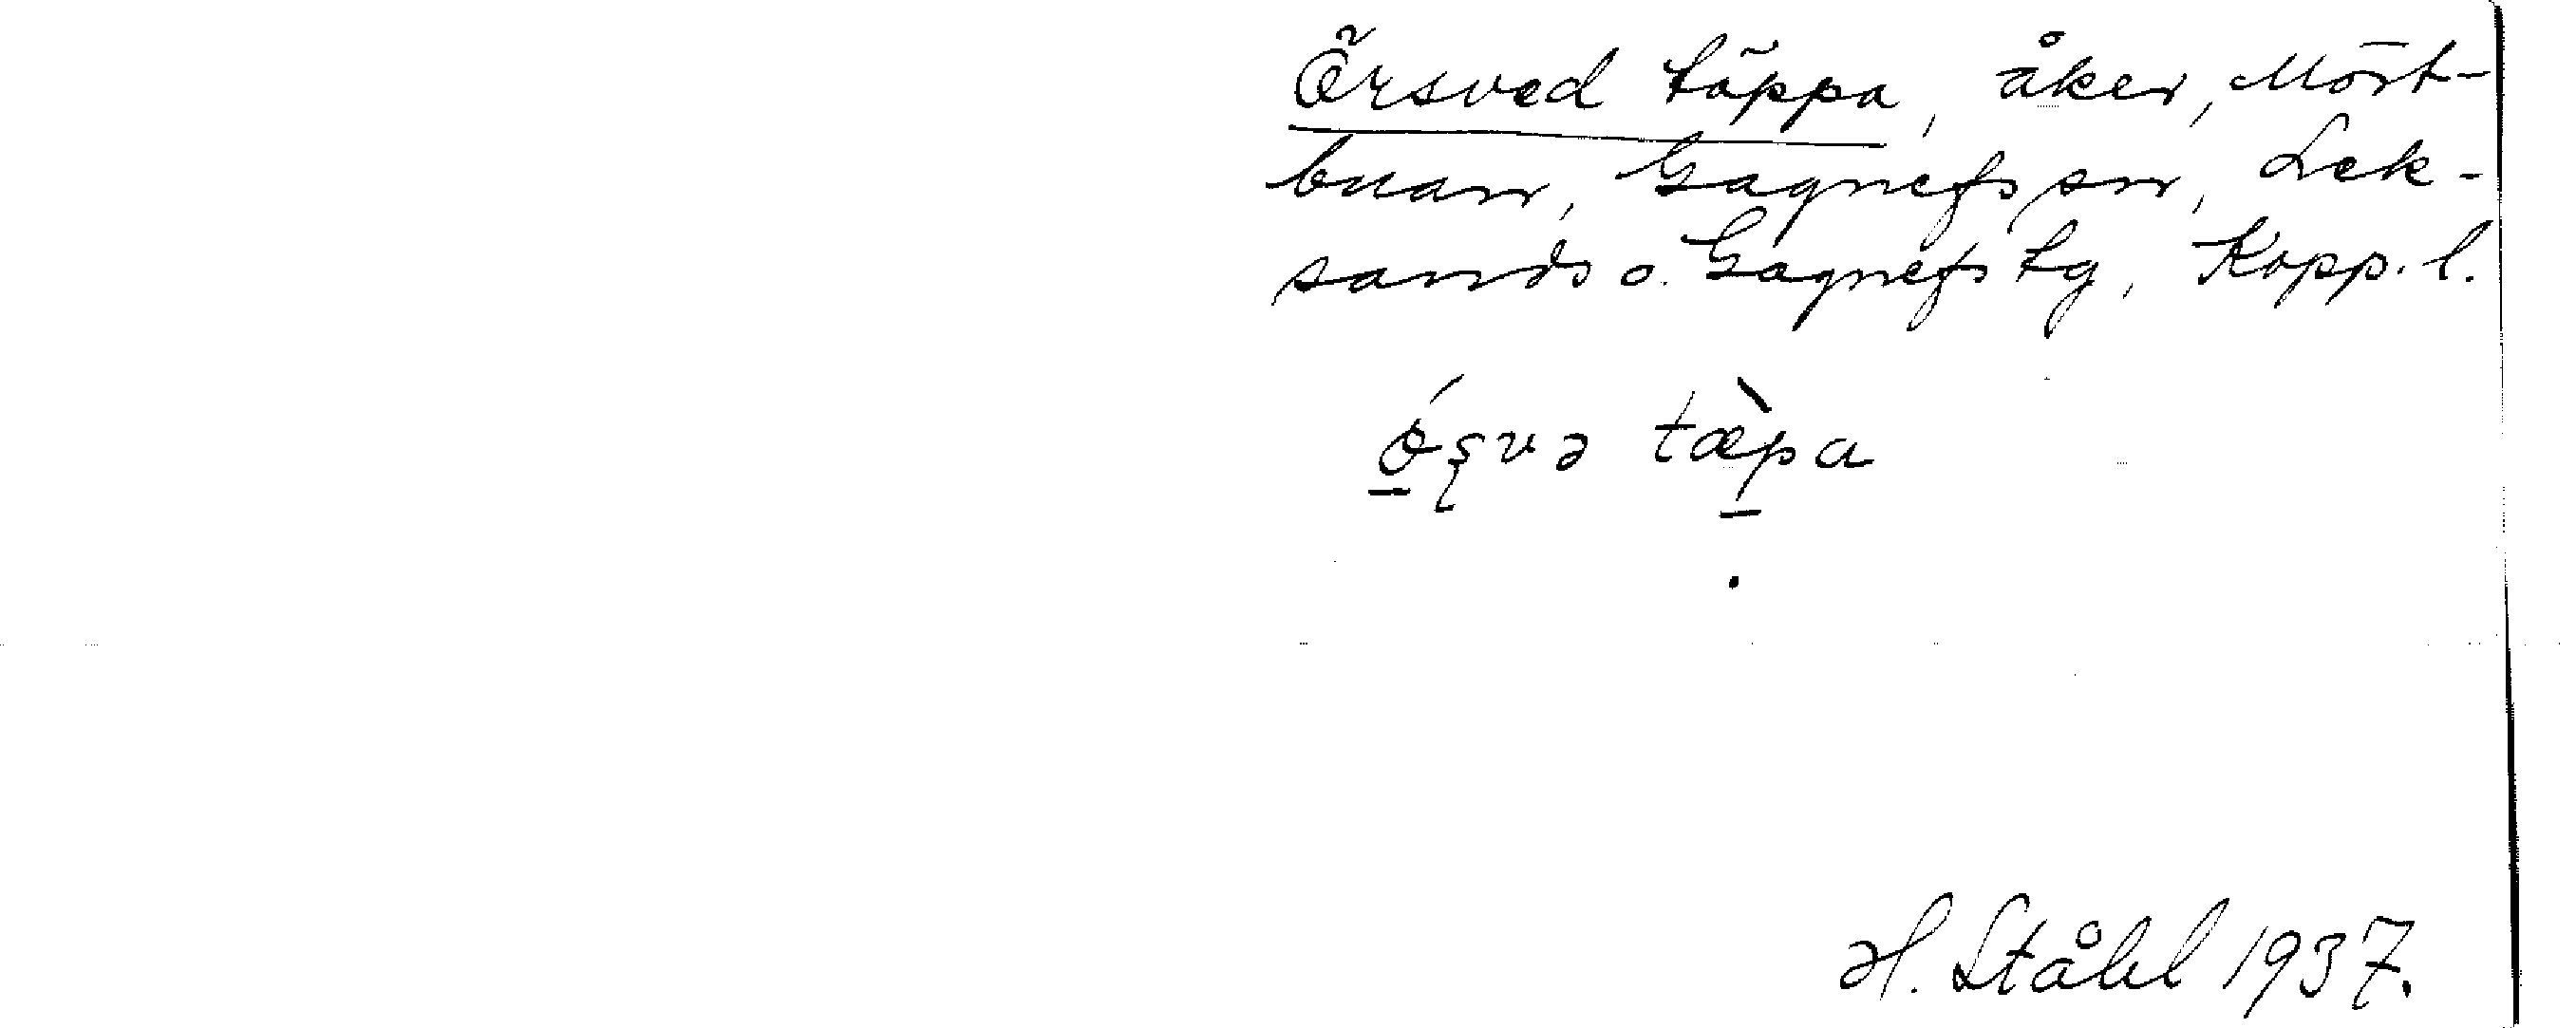 Örsved täppa, åker, Mört-
buan, Gagnefs sn, Lek-
sands o. Gagnefs tg, Kopp. l.
ǿʂvə tæ̀pa
H. Ståhl 1937.